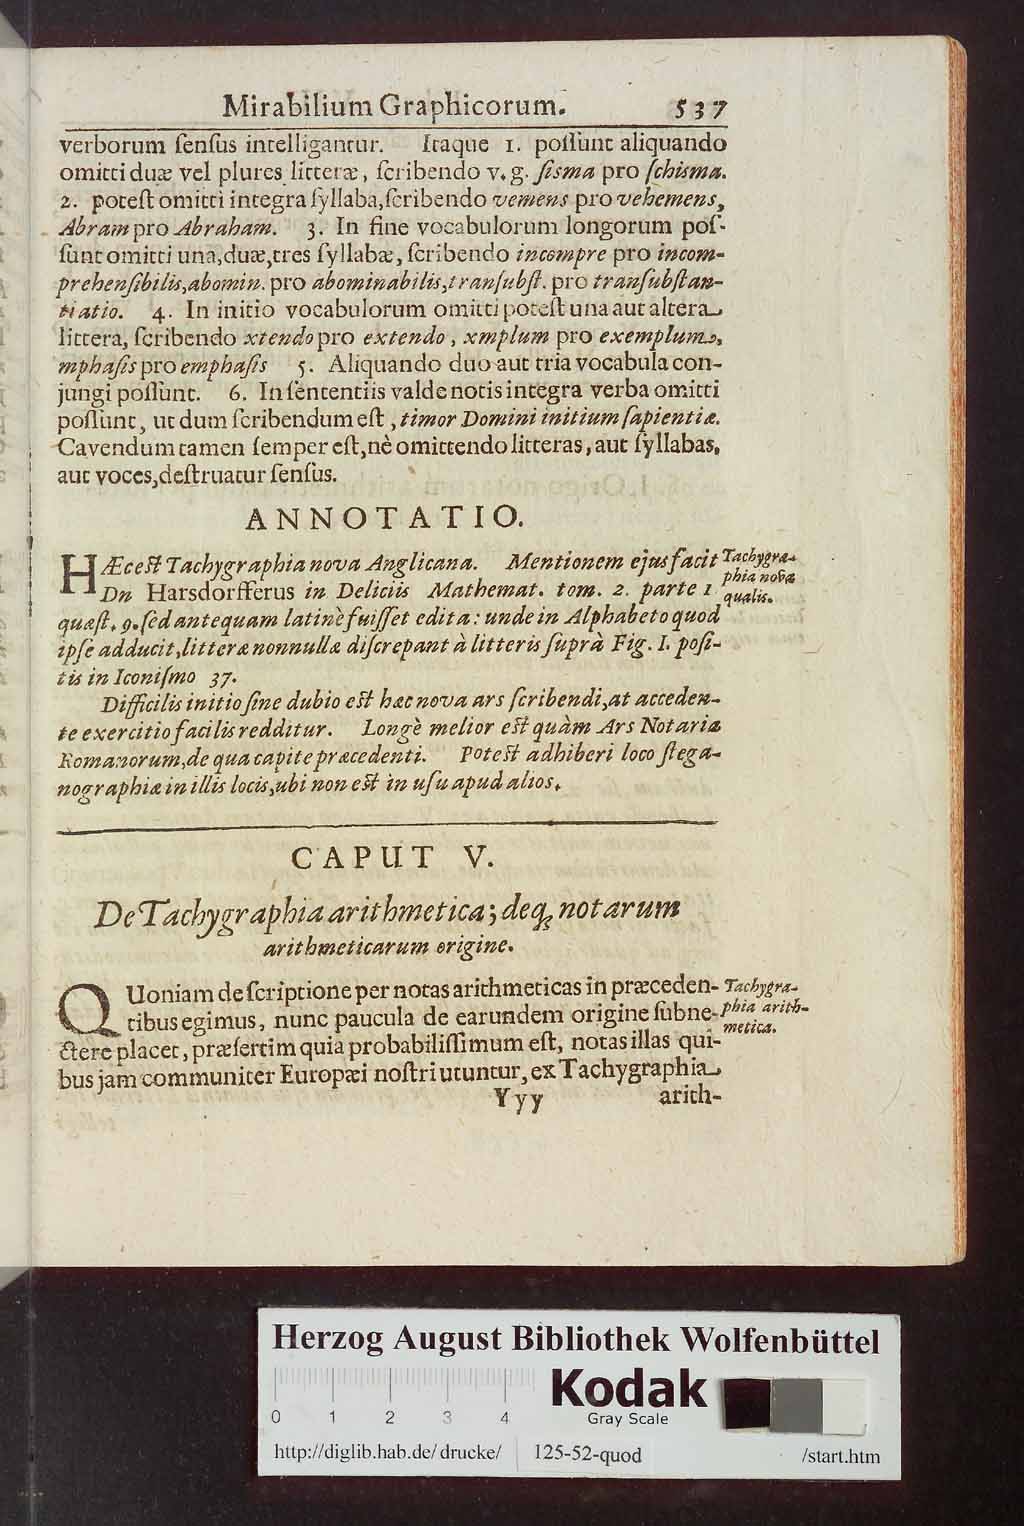 Mirabilium Graphicorum. 537
verborum ſenſus intelligantur. Itaque 1. poſſunt aliquando
omitti duæ vel plures litteræ, ſcribendo v. g. ſisma pro ſchisma.
2. poteſt omitti integra ſyllaba, ſcribendo vemens pro vehemens,
Abram pro Abraham. 3. In fine vocabulorum longorum poſ-
ſunt omitti una, duæ, tres ſyllabæ, ſcribendo incompre pro incom-
prehenſibilis, abomin. pro abominabilis, tranſubſt. pro tranſubſtan-
tiatio. 4. In initio vocabulorum omitti poteſt una aut altera
littera, ſcribendo xtendo pro extendo, xmplum pro exemplum,
mphaſis pro emphaſis 5. Aliquando duo aut tria vocabula con-
jungi poſſunt. 6. In ſententiis valde notis integra verba omitti
poſſunt, ut dum ſcribendum eſt, timor Domini initium ſapientiæ.
Cavendum tamen ſemper eſt, nè omittendo litteras, aut ſyllabas,
aut voces, deſtruatur ſenſus.
ANNOTATIO.
HÆc eſt Tachygraphia nova Anglicana. Mentionem ejus facit
Dn Harsdorfferus in Deliciis Mathemat. tom. 2. parte 1
quæſt. 9. ſed antequam latinè fuiſſet edita: unde in Alphabeto quod
ipſe adducit, litteræ nonnullæ diſcrepant à litteris ſuprà Fig. I. poſi-
tis in Iconiſmo 37.
Tachygra-
phia nova
qualis.
Difficilis initio ſine dubio eſt hæc nova ars ſcribendi, at acceden-
te exercitio facilis redditur. Longè melior eſt quàm Ars Notaria
Romanorum, de qua capite præcedenti. Poteſt adhiberi loco ſtega-
nographiæ in illis locis, ubi non eſt in uſu apud alios.
CAPUT V.
De Tachygraphia arithmetica; deq; notarum
arithmeticarum origine.
QUoniam de ſcriptione per notas arithmeticas in præceden-
tibus egimus, nunc paucula de earundem origine ſubne-
ctere placet, præſertim quia probabiliſſimum eſt, notas illas qui-
bus jam communiter Europæi noſtri utuntur, ex Tachygraphia
Tachygra-
phia arith-
metica.
Yyy arith-
Herzog August Bibliothek Wolfenbüttel
Kodak
Gray Scale
0 1 2 3 4
http://diglib.hab.de/drucke/ 125-52-quod /start.htm